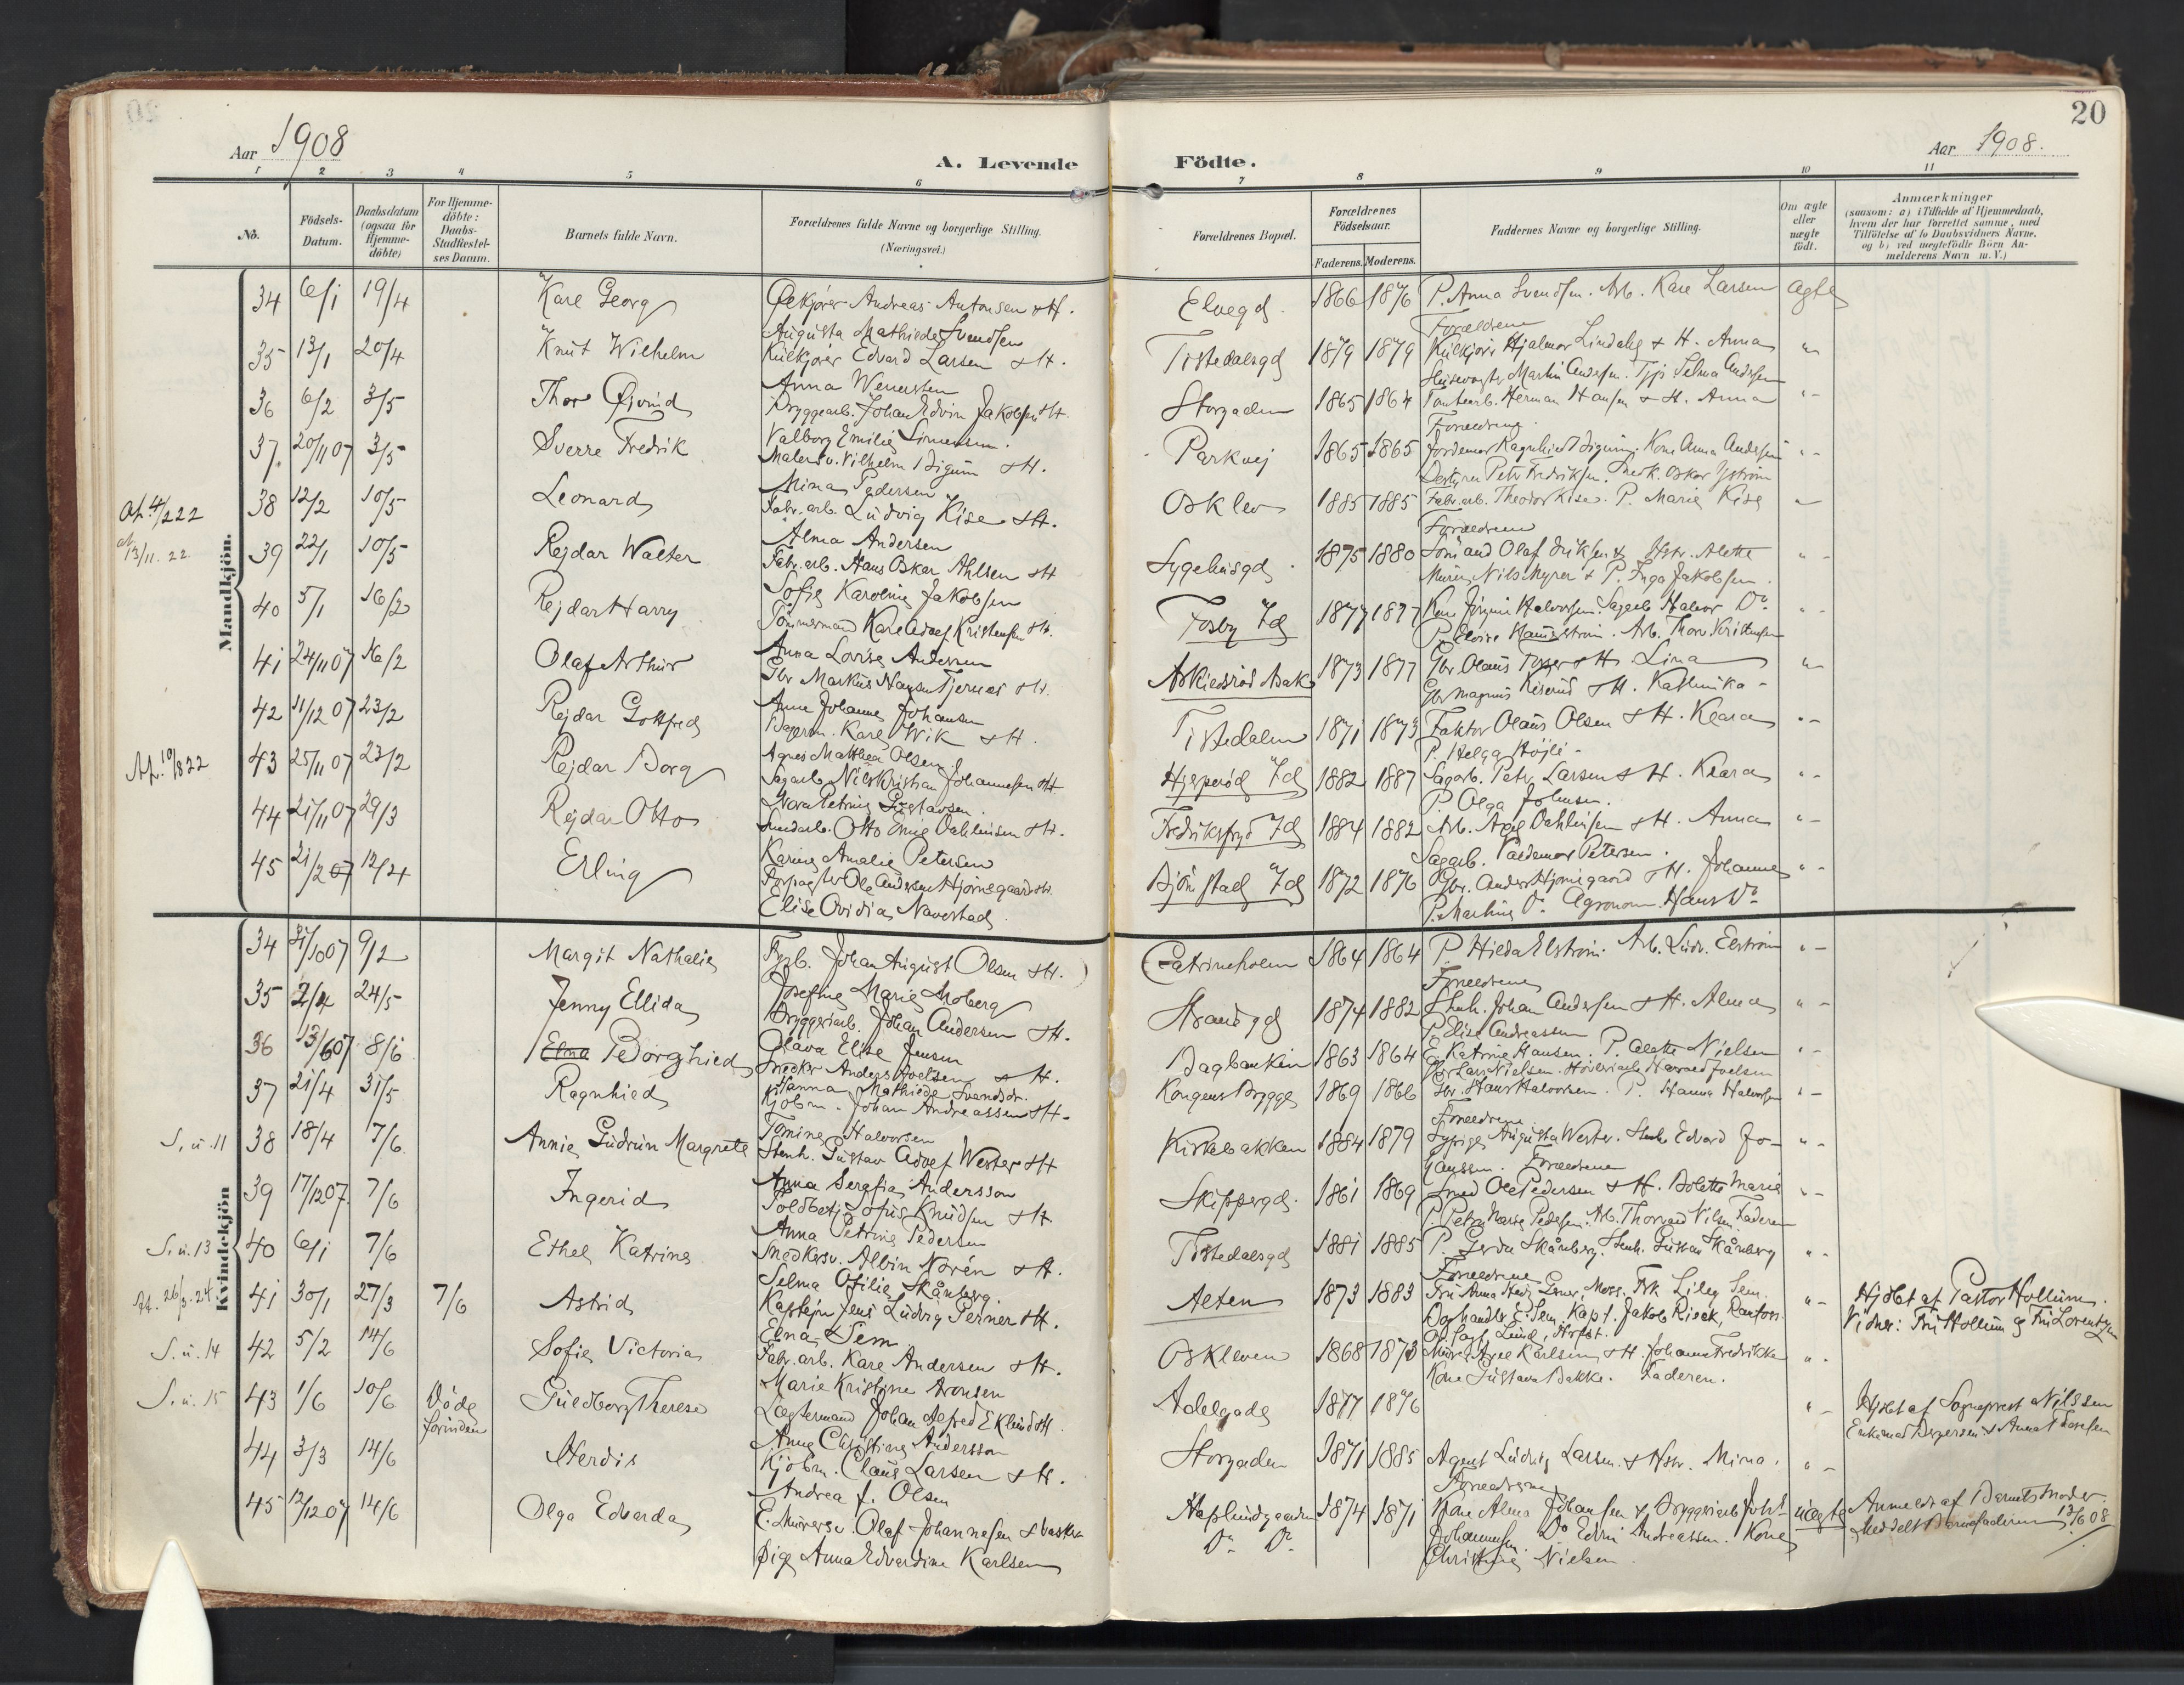 20
Aar 1908
A. Levende
Födte.
Aar 1908.
1 2 3 4 5 6 7 8 9 10 11
Nó.
Födsels-Datum.
Daabsdatum (ogsaa for Hjemme-döbte)
For Hjemme-döbte: Daabs-Stadfæstel-ses Datum.
Barnets fulde Navn.
Forældrenes fulde Navne og borgerlige Stilling.
(Næringsvei.)
Forældrenes Bopæl.
Forældrenes Födselsaar.
Faderens. Moderens.
Faddernes Navne og borgerlige Stilling.
Om ægte eller uægte födt.
Anmærkninger
(saasom: a) i Tilfælde af Hjemmedaab,
hvem der har forrettet samme, med
Tilföielse af to Daabsvidners Navne.
og b) ved uægtefödte Börn An-
melderens Navn m. V.)
Mandkjön.
34 6/1 19/4 Karl Georg
Andreas Antonsen & H.
Augusta Mathilde Svendsen
Elvegd. 1866 1876 P. Anna Svendsen. Arb. Karl Larsen ægte
Forældrene
35 13/1 20/4 Knut Wilhelm
Kulkjører Edvard Larsen & H.
Anna
Tistedalsgd 1879 1879 Kulkjører Hjalmar Lindahl & H. Anna
36 6/2 3/5 Thor Øivind
Bryggearb. Johan Edvin Jakobsen & H.
Valborg Emilie Simensen.
Storgaden 1865 1864 Herman Hansen & H. Anna
Forældrene.
37. 20/11 07 3/5 Sverre Fredrik
Malersv. Vilhelm & H.
Mina Pedersen
Parkvej 1865 1865 Jordemor Ragnhild Kone Anna Andersen
Petr Fredriksen. Oskar
Af. 4/2 22
38 12/2 10/5 Leonard
Fabr. arb. Ludvig Kise & H.
Alma Andersen
Osklev 1885 1885 Fabr. arb. Theodor Kise. P. Marie Kise
Forældrene
at 13/11. 22
39 22/1 10/5 Rejdar Walter
Fabr. arb. Hans Oskar Ahlsen & H
Sofie Karoline Jakobsen
Sygehusgd. 1875 1880 Sömand Olaf Eriksen & Hstr. Alette
Murer Nils Myrer & P. Inga Jakobsen.
40 5/1 16/2 Rejdar Harry
Tömmermand Karl Adolf Kristensen & H.
Anna Lovise Andersen
Fosby Id 1877 1877 Kone Halvorsen. Sagarb. Halvor Do
41 24/11 07 16/2 Olaf Arthur
Gbr Markus Hansen & H.
Anne Johanne Johansen
1873 1877 Gbr. Olaus & H. Lina
Gbr. Magnus & H. Kathinka
42 11/12 07 23/2 Rejdar Gottfred
Karl Wik & H.
Agnes Mathea Olsen
Tistedalen 1871 1873 Faktor Olaus Olsen & H. Klara
P. Helga Højli
Af. 10/8 22
43 25/11 07 23/2 Rejdar Borg
Sagarb. Nils Kristian Johannesen & H
Nora Petrine Gustavsen.
Id 1882 1887 Sagarb. Petr Larsen & H. Klara
P. Olga Johnsen.
44 21/11 07 29/3 Rejdar Otto
Otto Emil Dahlinsen & H.
Karine Amalie Petersen
Fredriksfryd Id 1884 1882 Arb. Axel Dahlinsen & H. Anna
Sagarb. Valdemar Petersen.
45 21/2 07 12/4 Erling
Forpagter Ole Andersen Hjørnegaard & H.
Elise Ovidia Navestad.
Björnstad Id 1872 1876 Gbr. Anders Hjørnegaard & H. Johanne
P. Martine Do Agronom Hans Do
Kvindekjön
34 31/10 07 9/2 Margit Nathalie
Johan August Olsen & H.
Josefine Marie Moberg
Catrineholm 1864 1864 P. Hilda Elström. Arb. Ludv. Elström
Forældrene
35 2/4 24/5 Jenny Ellida
Bryggeriarb. Johan Andersen & H.
Olava Elise Jensen
Strandgd 1874 1882 Stenh. Johan Andersen & H. Alma
P. Elise Andreassen
36 13/6 07 8/6 Elma Borghild
Snedker Anders Joelsen & H.
Hanna Mathilde Svendsdr.
Bagbanken 1863 1864 E. Katrine Hansen. P. Alette Nielsen
Lars Nielsen. Joelsen
37 21/4 31/5 Ragnhild
Kjöbm. Johan Andreassen & H.
Tomine Halvorsen
Kongens Brygge 1869 1866 Gbr. Hans Halvorsen. P. Hanna Halvorsen
Forældrene
S. u. 11
38 18/4 7/6 Annie Gudrun Margrete
Stenh. Gustav Adolf Wester & H
Anna Serafia Andersson
Kirkebakken 1884 1879 Sypige Augusta Wester. Stenh. Edvard Jo-
hanssen. Forældrene
39 17/12 07. 7/6 Ingerid
Toldbetj. Sofus Knudsen & H
Anna Petrine Pedersen
Skippergd. 1861 1869 Smed Ole Pedersen & H. Bolette Marie
P. Petra Marie Pedersen. Arb. Thorvald Nilsen. Faderen
S. u. 13
40 6/1 7/6 Ethel Katrine
Snedkersv. Albin Norén & H.
Selma Otilie Skånberg.
Tistedalsgd 1881 1885 P. Gerda Skånberg. Stenh. Gustav Skånberg
Forældrene
Af. 26/3. 24.
41 30/1 27/3 7/6 Astrid
Kaptejn Jens Ludvig Perner & H.
Elna Sem
Alten 1873 1883 Frk Lilly Sem.
Boghandler E. Sem. Kapt. Jakob Rieck, Ranfors.
Hjdbt af Pastor Hollum.
Vidner: Fru Hollum og Fru Lorentzen
S. u. 14
42 5/2 14/6 Sofie Victoria
Fabr. arb. Karl Andersen & H.
Marie Kristine Aronsen
Oskleven 1868 1873 Murer Axel Karlsen & H. Johanne Fredrikke
Kone Gustava Bakke. Faderen.
S. u. 15
43 1/6 10/6 Døde forinden Guldborg Therese
Lagtermand Johan Alfred Eklund & H
Anna Christine Andersson
Adelgade 1877 1876
Hjdbt af Sogneprest Nilssen
44 3/3 14/6 Herdis
Kjöbm. Claus Larsen & H.
Andrea f. Olsen
Storgaden 1871 1885 Agent Ludvig Larsen & Hstr. Mina.
Forældrene
45 12/12 07 14/6 Olga Edvarda
E. Murersv. Olaf Johannesen &
Pige Anna Edvardine Karlsen
Do Do
1874 1871 Kone Alma Johansen & Bryggeriarb. Joh.
Johannesen. Do Edvin Andreassen. Kone
Christine Nielsen
uægte
Anmeldt af Barnets Moder.
Meddelt Barnefaderen 13/6 08